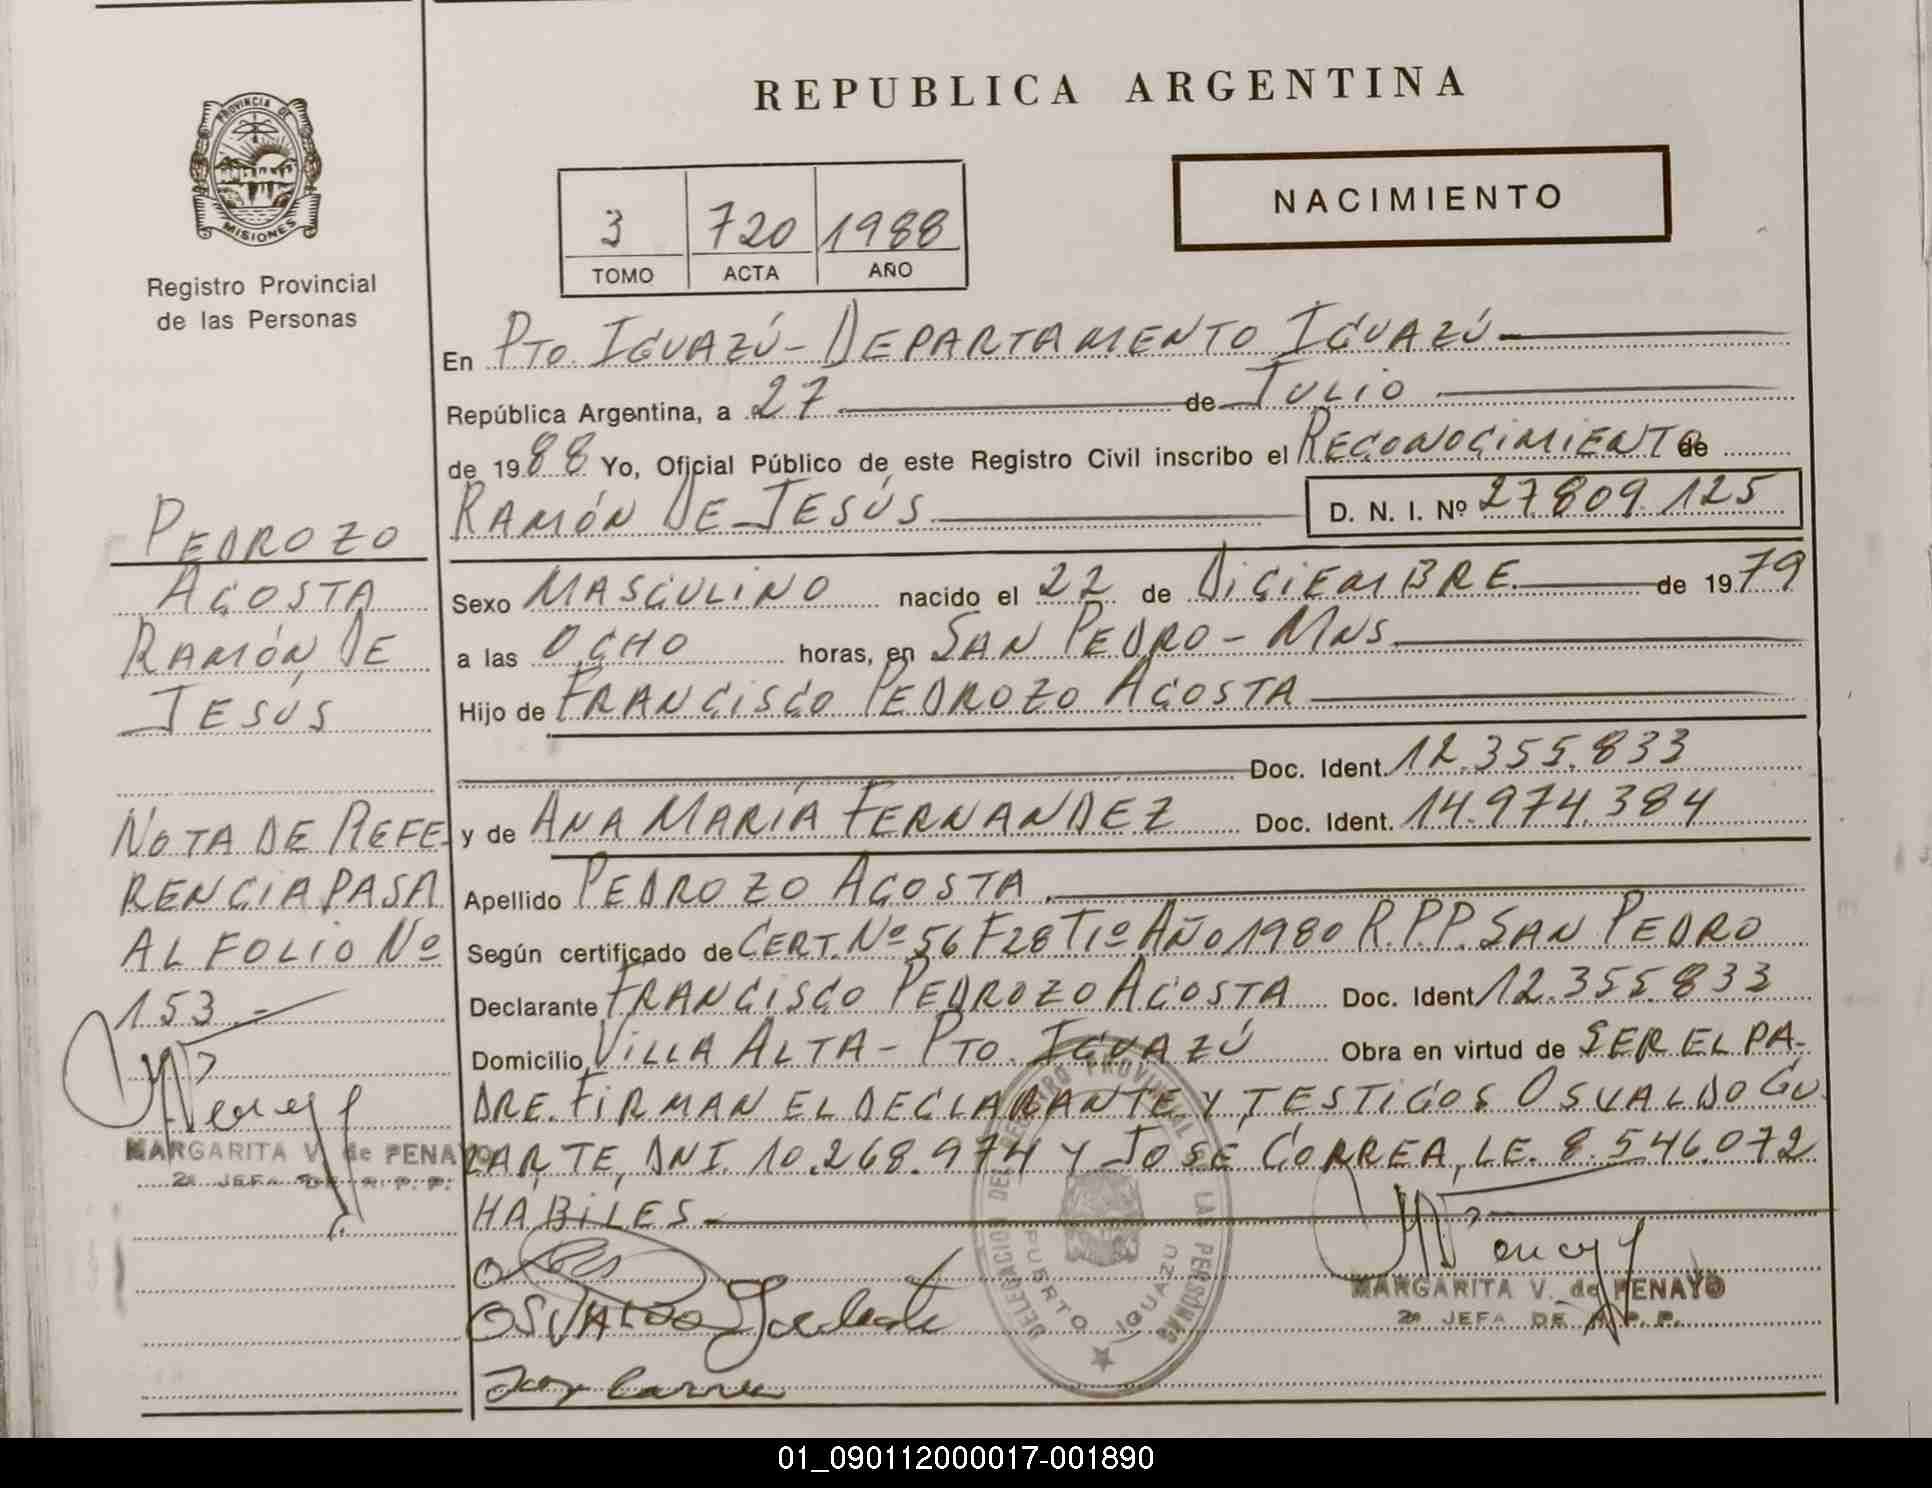 REPUBLICA ARGENTINA
PROVINCIA DE
MISIONES
Registro Provincial
de las Personas
3 720 1988
TOMO ACTA AÑO
NACIMIENTO
En PTO. IGUAZÚ - DEPARTAMENTO IGUAZÚ
República Argentina, a 27 de JULIO
de 1988 Yo, Oficial Público de este Registro Civil inscribo el RECONOCIMIENTO de
RAMÓN DE JESÚS D. N. I. Nº 27.809.125
Sexo MASCULINO nacido el 22 de DICIEMBRE de 1979
a las OCHO horas, en SAN PEDRO - MNS
Hijo de FRANCISCO PEDROZO AGOSTA
Doc. Ident. 12.355.833
y de ANA MARÍA FERNANDEZ Doc. Ident. 14.974.384
Apellido PEDROZO AGOSTA
Según certificado de CERT. Nº 56 F28 T1º AÑO 1980 R.P.P. SAN PEDRO
Declarante FRANCISCO PEDROZO AGOSTA Doc. Ident. 12.355.833
Domicilio VILLA ALTA - PTO. IGUAZÚ Obra en virtud de SER EL PA-
DRE. FIRMAN EL DECLARANTE Y TESTIGOS OSVALDO GU
ZARTE, DNI. 10.268.974 Y JOSÉ CORREA, LE. 8.546.072
HABILES
OSVALDO
MARGARITA V. de PENAYO
2ª JEFA DE R. P. P.
DELEGACION DEL REGISTRO PROVINCIAL DE LAS PERSONAS
PUERTO IGUAZU
PEDROZO
AGOSTA
RAMÓN DE
JESÚS
NOTA DE REFE-
RENCIA PASA
AL FOLIO Nº
153.-
MARGARITA V. de PENAYO
2ª JEFA DE R. P. P.
01_090112000017-001890